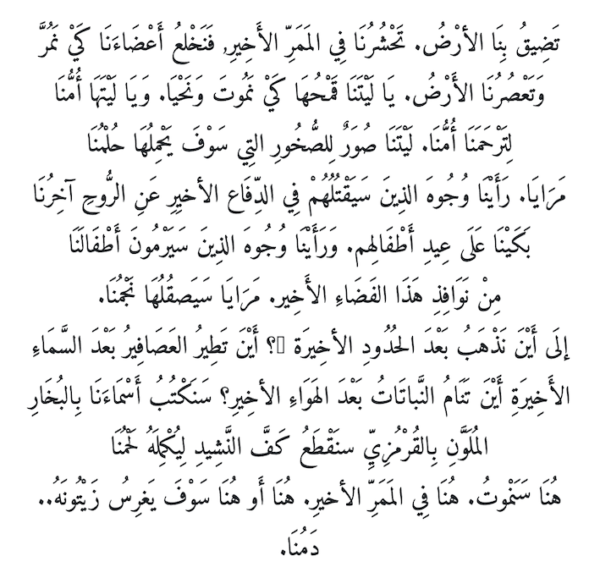 تَضِيقُ بِنَا الأرْضُ. تَحْشُرُنَا فِي المَمَرِّ الأَخِيرِ, فَنَخْلعُ أَعْضَاءَنَا كَيْ نَمُرَّ
وَتَعْصُرُنَا الأَرْضُ. يَا لَيْتَنَا قَمْحُهَا كَيْ نَمُوتَ وَنَحْيَا. وَيَا لَيْتَهَا أُمُّنَا
لِتَرْحَمَنَا أُمُّنَا. لَيْتَنَا صُوَرٌ لِلصُّخُورِ التِي سَوْفَ يَحْمِلُهَا حُلْمُنَا
مَرَايَا. رَأَيْنَا وُجُوهَ الذِينَ سَيَقْتُلُهُمْ فِي الدِّفَاع الأخيرِ عَنِ الرُّوحِ آخِرُنَا
بَكَيْنَا عَلَى عِيدِ أَطْفَالِهم. وَرَأَيْنَا وُجُوهَ الذِينَ سَيَرْمُونَ أَطْفَالَنَا
مِنْ نَوَافِذِ هَذَا الفَضَاءِ الأَخِير. مَرَايَا سَيَصقُلُهَا نَجْمُنَا.
إلَى أَيْنَ نَذْهَبُ بَعْدَ الحُدُودِ الأخِيرَة ؟ أَيْنَ تَطِيرُ العَصَافِيرُ بَعْدَ السَّمَاءِ
الأَخِيرَةِ أَيْنَ تَنَامُ النَّباتَاتُ بَعْدَ الهَوَاءِ الأخِيرِ؟ سَنَكْتُبُ أَسْمَاءَنَا بِالبُخَارِ
المُلَوَّنِ بِالقُرْمُزِيِّ سنَقْطَعُ كَفَّ النَّشِيدِ لِيُكْمِلَهُ لَحْمُنَا
هُنَا سَنْموتُ. هُنَا فِي المَمَرِّ الأخيرِ. هُنَا أَو هُنَا سَوْفَ يَغرِسُ زَيْتُونَهُ..
دَمُنَا.